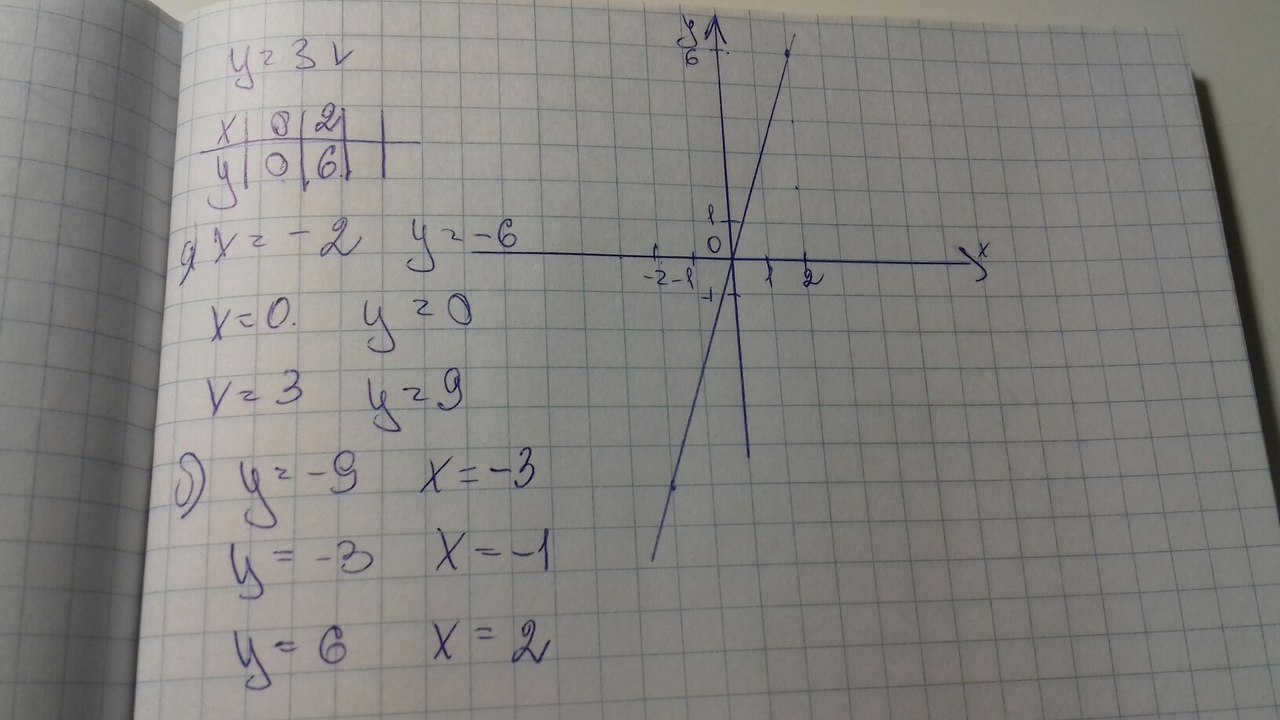 y = 3x
x | 0 | 2 |
y | 0 | 6 |
а) x = -2 y = -6
x = 0. y = 0
x = 3 y = 9
б) y = -9 x = -3
y = -3 x = -1
y = 6 x = 2
y
6
1
0
-2 -1 1 2 x
-1